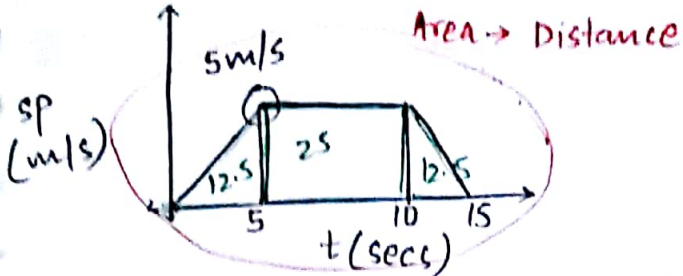 Area → Distance
5m/s
sp
(m/s)
12.5
25
12.5
5
10
15
t (secs)